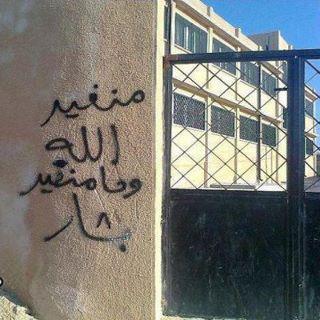 منغير
الله
وما منغير
بشار